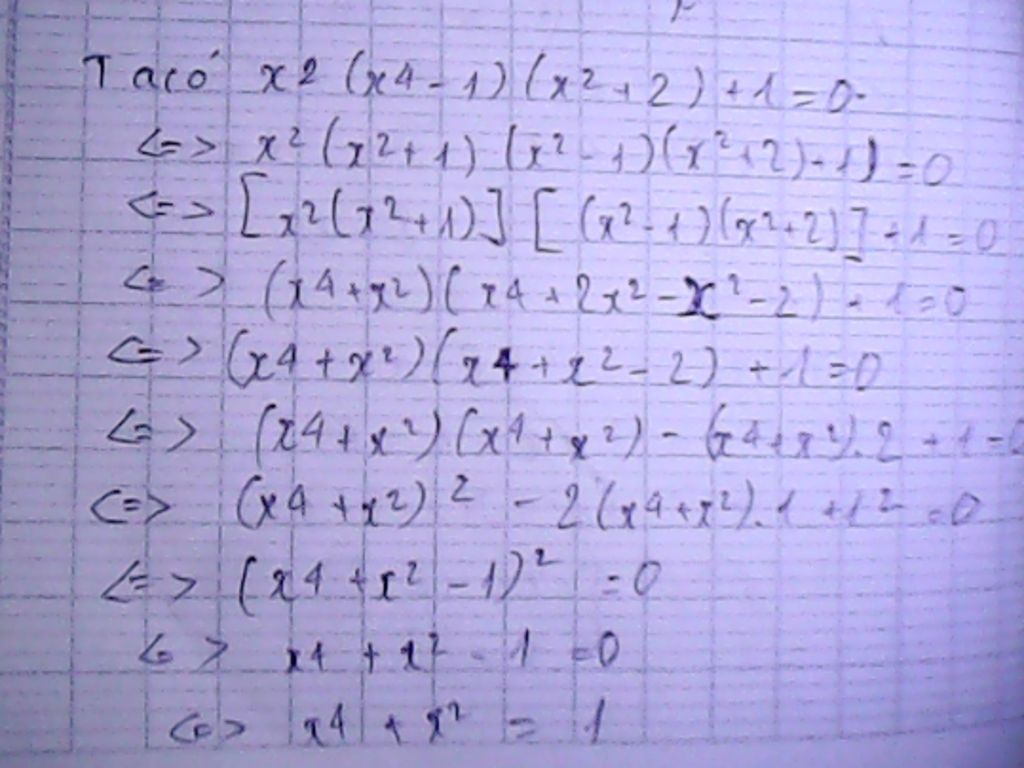 Ta có x2 (x4 - 1) (x² + 2) + 1 = 0
<=> x² (x² + 1) (x² - 1) (x² + 2) + 1) = 0
<=> [x² (x² + 1)] [(x² - 1) (x² + 2)] + 1 = 0
<=> (x4 + x²) (x4 + 2x² - x² - 2) + 1 = 0
<=> (x4 + x²) (x4 + x² - 2) + 1 = 0
<=> (x4 + x²) (x4 + x²) - (x4 + x²). 2 + 1 = 0
<=> (x4 + x²) ² - 2 (x4 + x²). 1 + 1² = 0
<=> (x4 + x² - 1)² = 0
<=> x4 + x² - 1 = 0
<=> x4 + x² = 1